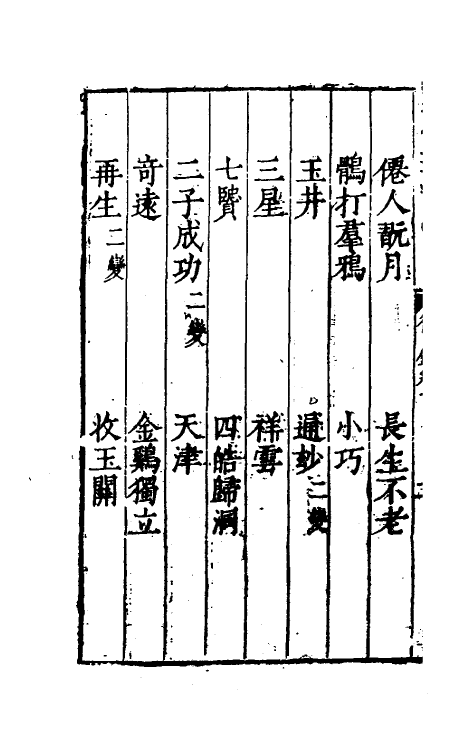 僊人翫月 長生不老
鶻打羣鴉 小巧
玉井 遞妙二變
三星 祥雲
七賢 四皓歸洞
二子成功二變 天津
奇遠 金鷄獨立
再生二變 收玉關